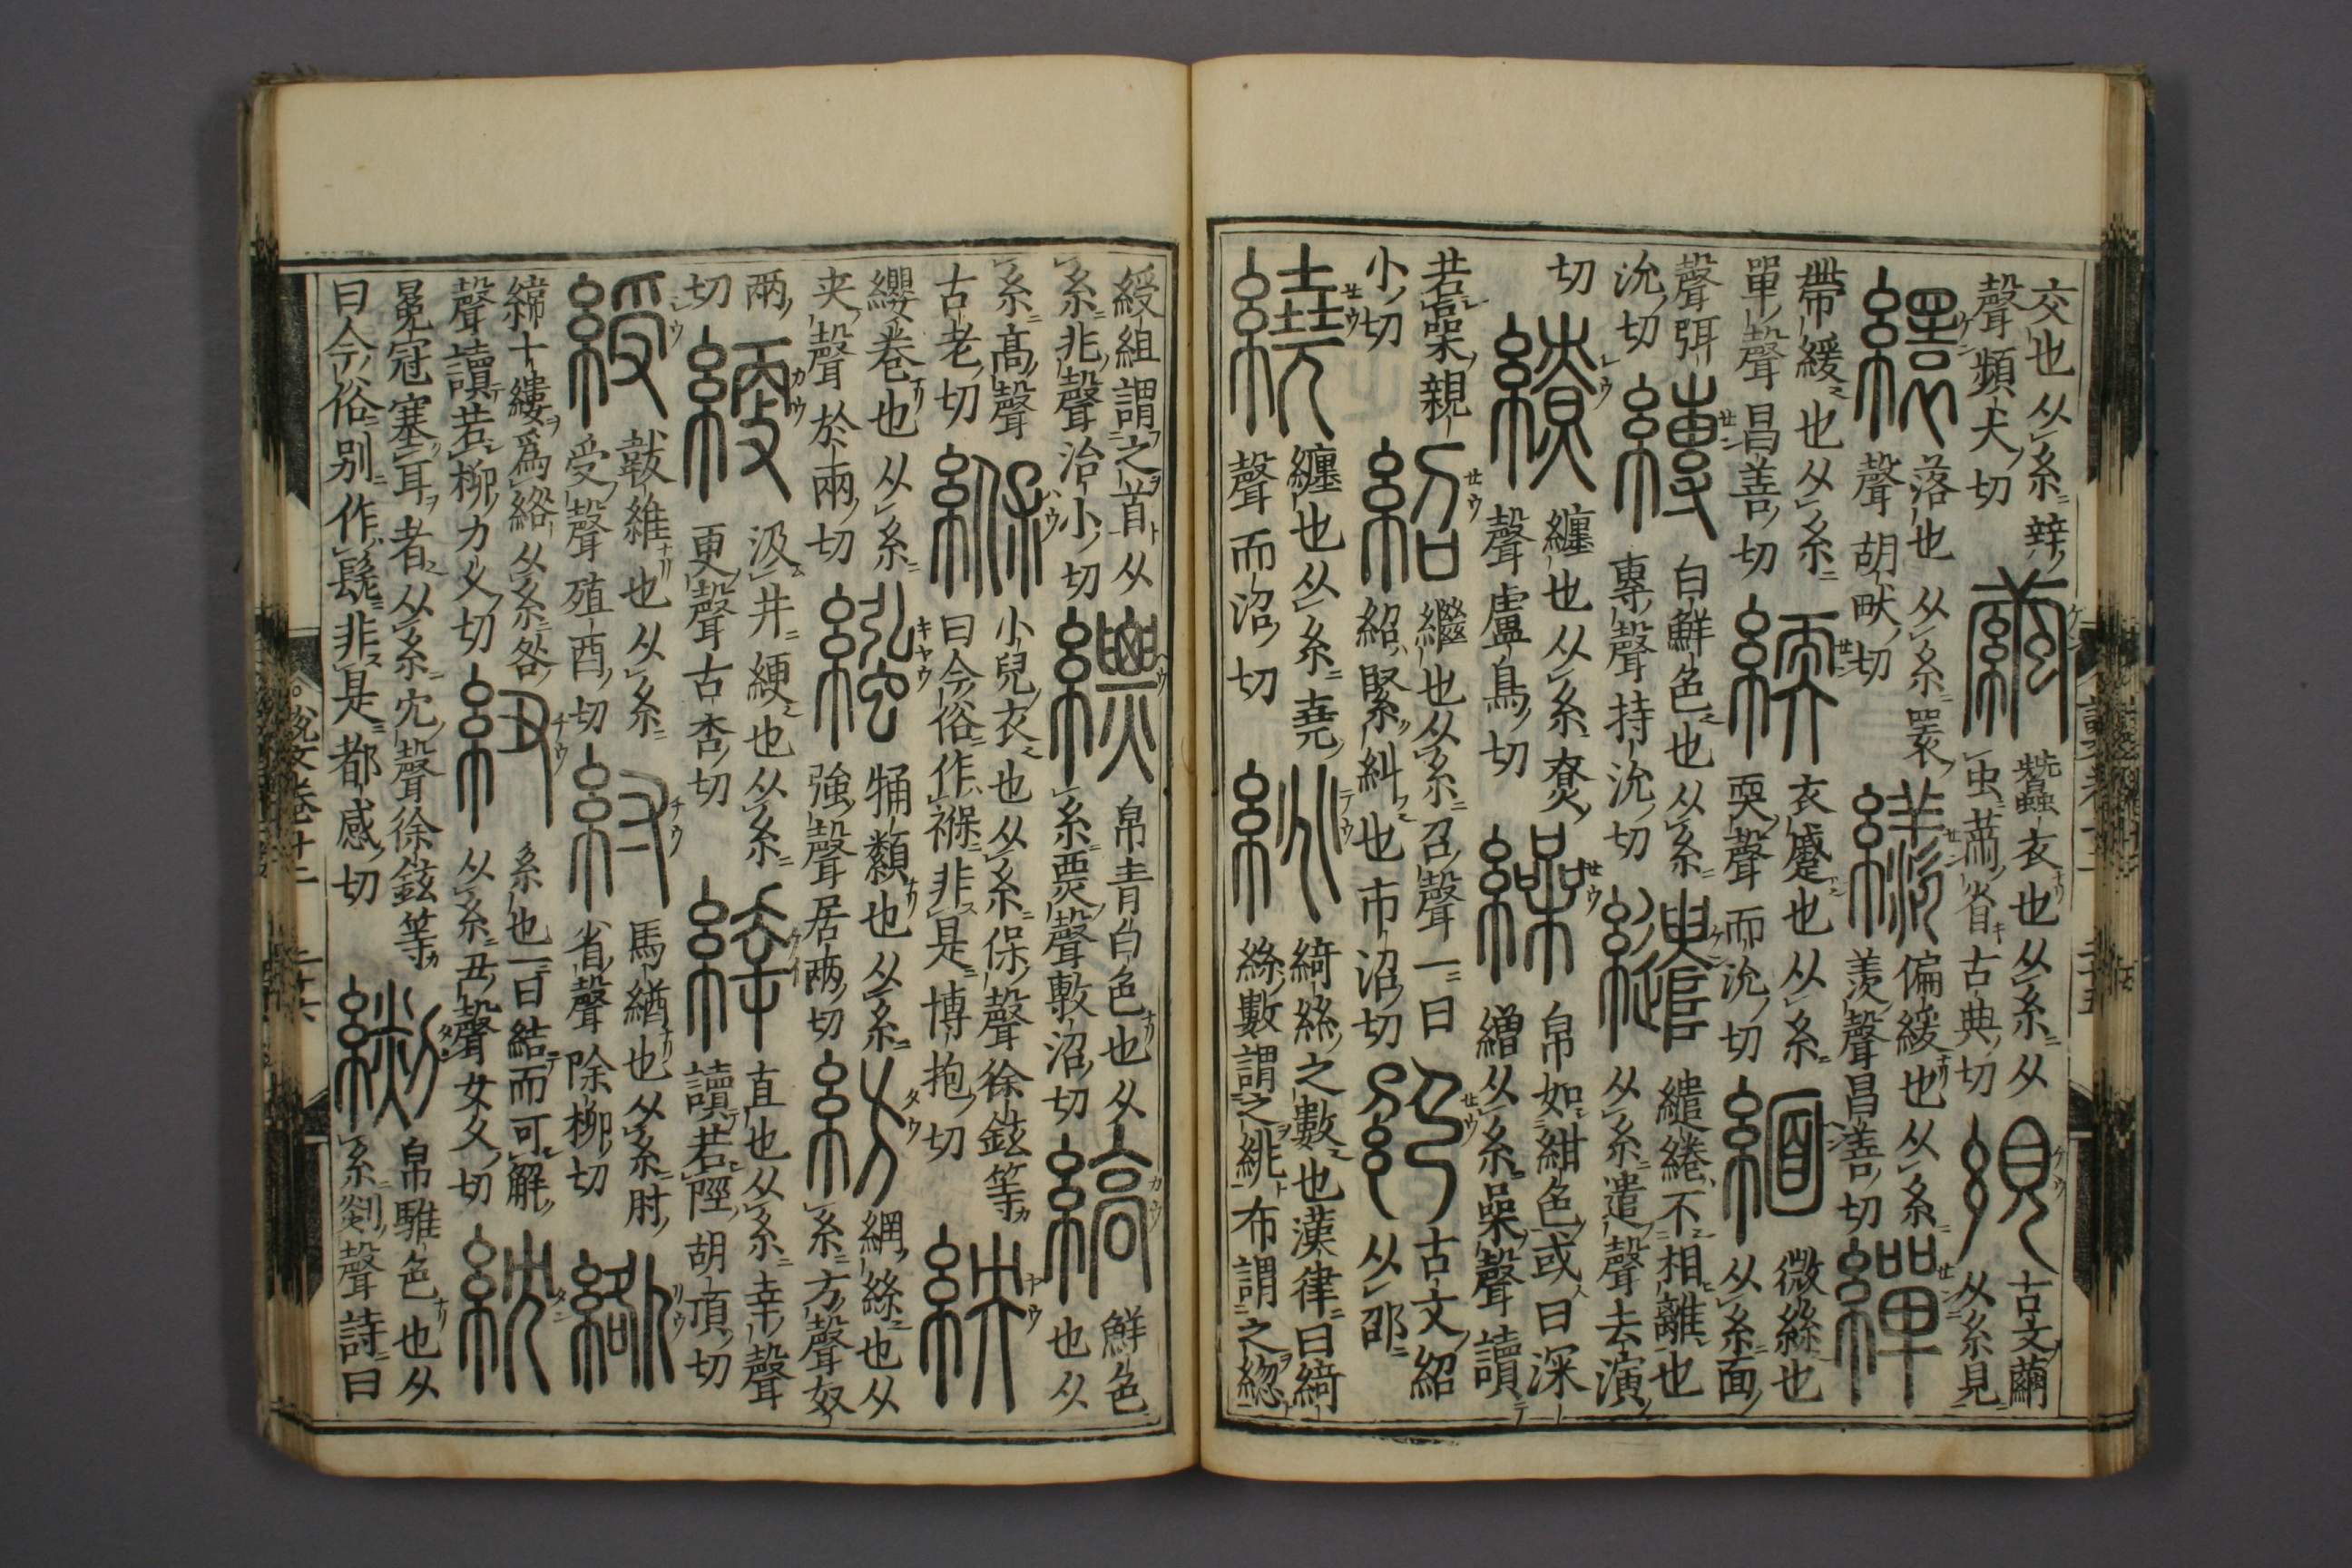 交也从糸辡
聲頻犬切
繭
蠶衣也从糸从
虫芇省古典切
絸
古文繭
从糸見
繯
落也从糸瞏
聲胡畎切
偏緩也从糸
羨聲昌善切
繟
帶緩也从糸
單聲昌善切
緛
衣蹙也从糸
耎聲而沇切
緬
微絲也
从糸面
聲弭
沇切
縳
白鮮色也从糸
專聲持沇切
繾
繾綣不相離也
从糸遣聲去演
切
繚
纏也从糸尞
聲盧鳥切
繰
帛如紺色或曰深
繒从糸喿聲讀
若喿親
小切
紹
繼也从糸召聲一曰
紹緊糾也市沼切
古文紹
从邵
繞
纏也从糸堯
聲而沼切
絩
綺絲之數也漢律曰綺
絲數謂之絩布謂之緫
綬組謂之首从
糸兆聲治小切
縹
帛青白色也从
糸㶾聲敷沼切
縞
鮮色
也从
糸高聲
古老切
緥
小兒衣也从糸保聲徐鉉等
曰今俗作褓非是博抱切
紻
纓卷也从糸
夾聲於兩切
繈
牊纇也从糸
強聲居兩切
紡
網絲也从
糸方聲奴
兩
切
綆
汲井綆也从糸
更聲古杏切
緈
直也从糸幸聲
讀若陘胡頂切
綬
韍維也从糸
受聲殖酉切
紂
馬緧也从糸肘
省聲除柳切
綹
緯十縷爲綹从糸咎
聲讀若柳力久切
紐
系也一曰結而可解
从糸丑聲女久切
紞
冕冠塞耳者从糸冘聲徐鉉等
曰今俗别作髧非是都感切
帛騅色也从
糸剡聲詩曰
説文卷十三
二十六